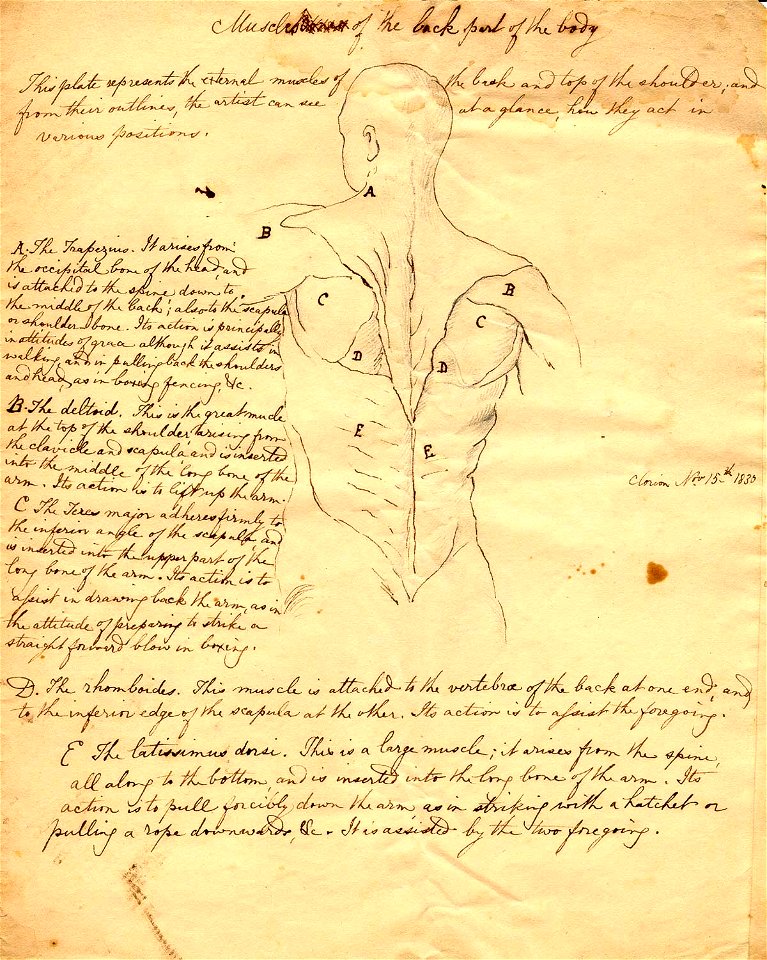 Muscles of the back part of the body
This plate represents the external muscles of the back and top of the shoulder; and
from their outlines, the artist can see at a glance, how they act in
various positions.
A
B
B
C
C
D
D
E
E
A. The Trapezius. It arises from
the occipital bone of the head, and
is attached to the spine down to
the middle of the back; also to the scapula
or shoulder bone. Its action is principally
in attitudes of grace although it assists in
walking and in pulling back the shoulders
and head, as in boxing fencing, &c.
B. The deltoid. This is the great muscle
at the top of the shoulder arising from
the clavicle and scapula and is inserted
into the middle of the long bone of the
arm. Its action is to lift up the arm.
C The Teres major adheres firmly to
the inferior angle of the scapula and
is inserted into the upper part of the
long bone of the arm. Its action is to
assist in drawing back the arm, as in
the attitude of preparing to strike a
straight forward blow in boxing.
Nov 15th
D. The rhomboides. This muscle is attached to the vertebræ of the back at one end, and
to the inferior edge of the scapula at the other. Its action is to assist the foregoing.
E The latissimus dorsi. This is a large muscle; it arises from the spine,
all along to the bottom and is inserted into the long bone of the arm. Its
action is to pull forcibly down the arm as in striking with a hatchet or
pulling a rope downwards, &c. It is assisted by the two foregoing.